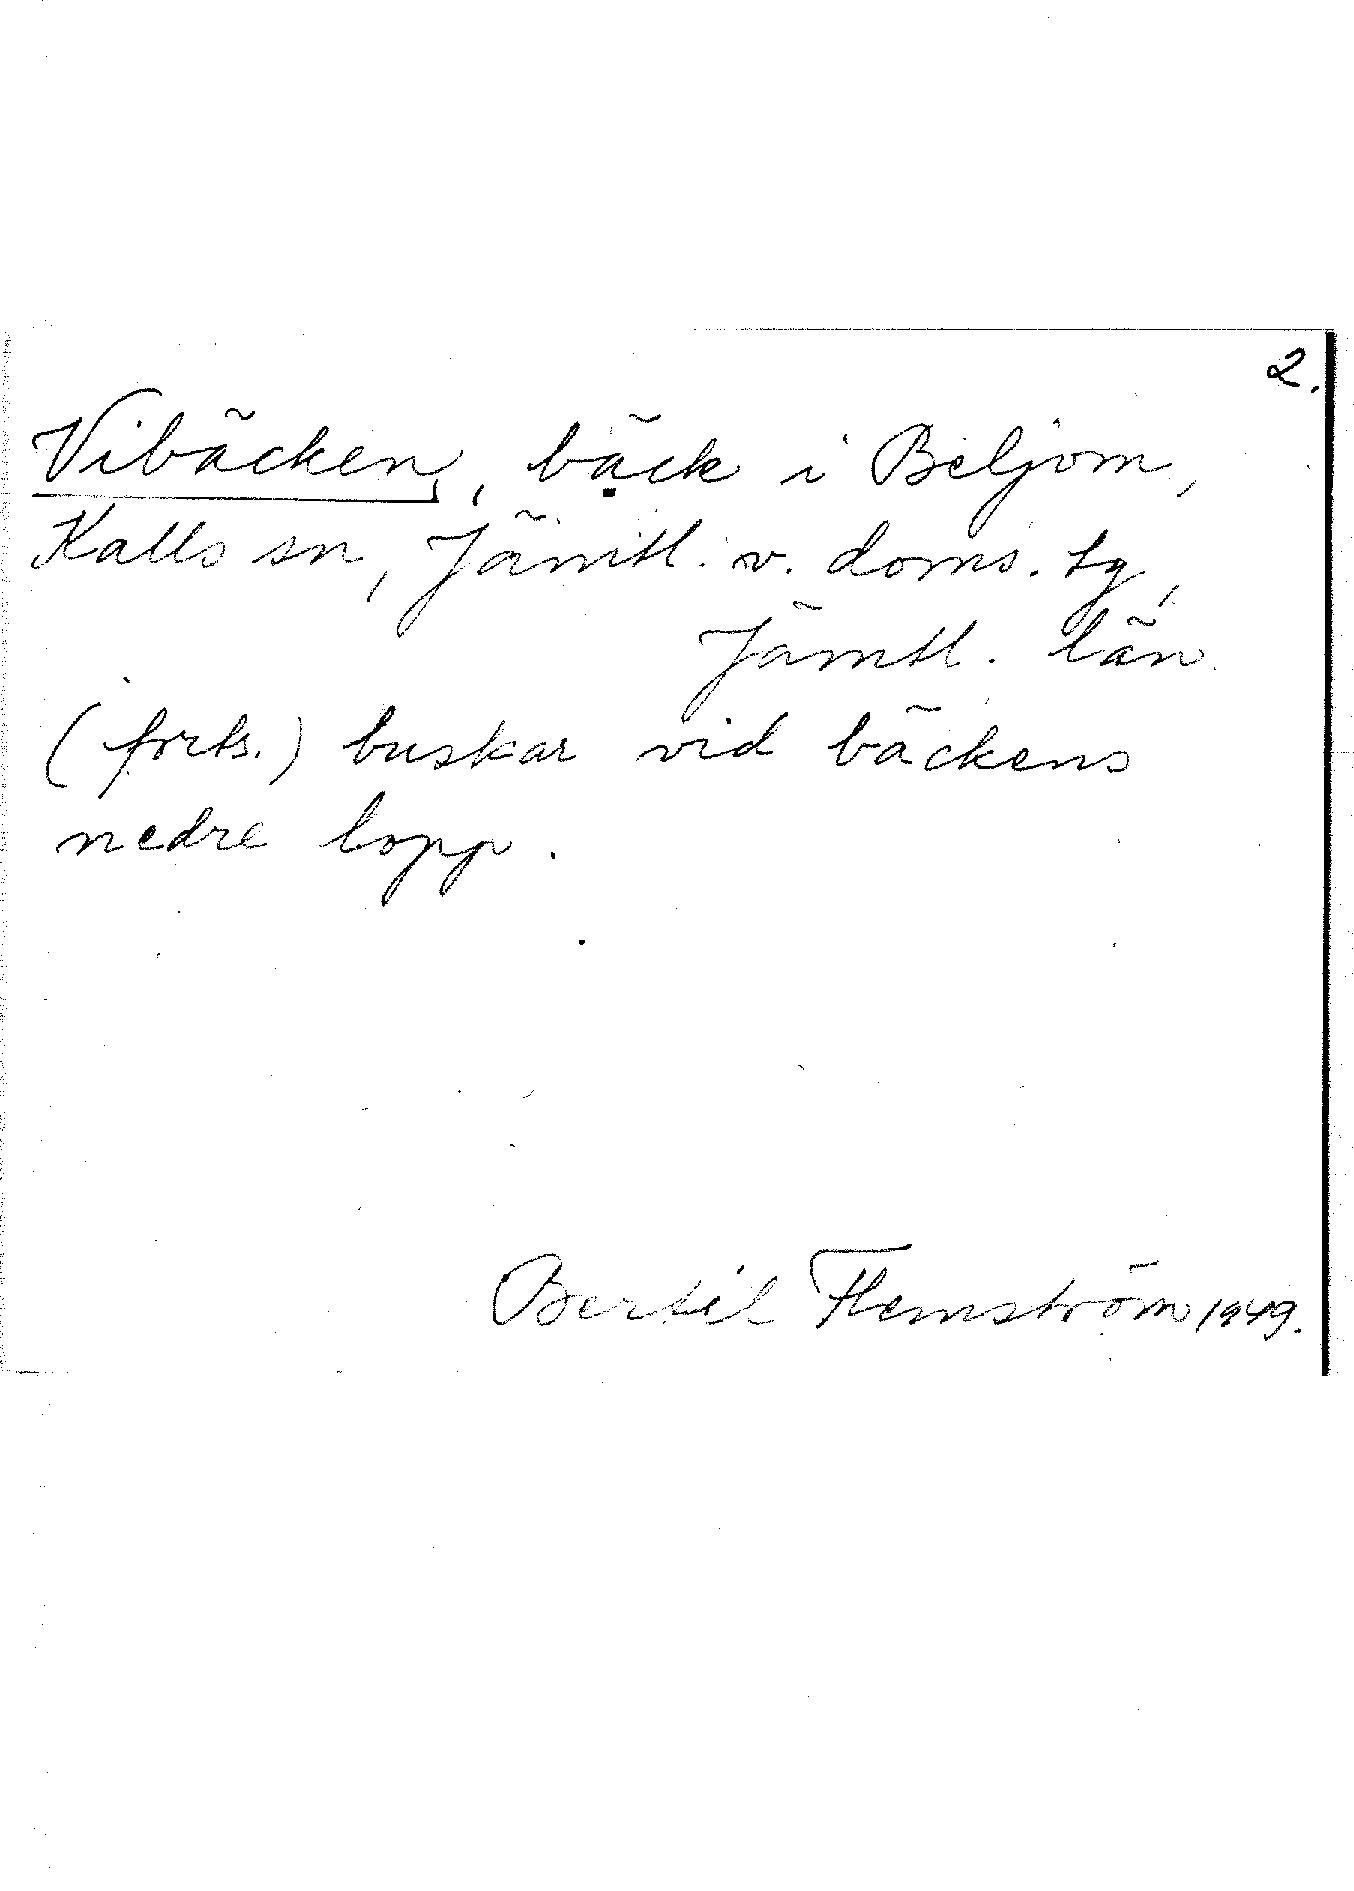 2.
Vibäcken, bäck i Beljom,
Kalls sn, Jämtl. v. doms. tg,
Jämtl. län.
(forts.) buskar vid bäckens
nedre lopp.
Bertil Flemström 1949.